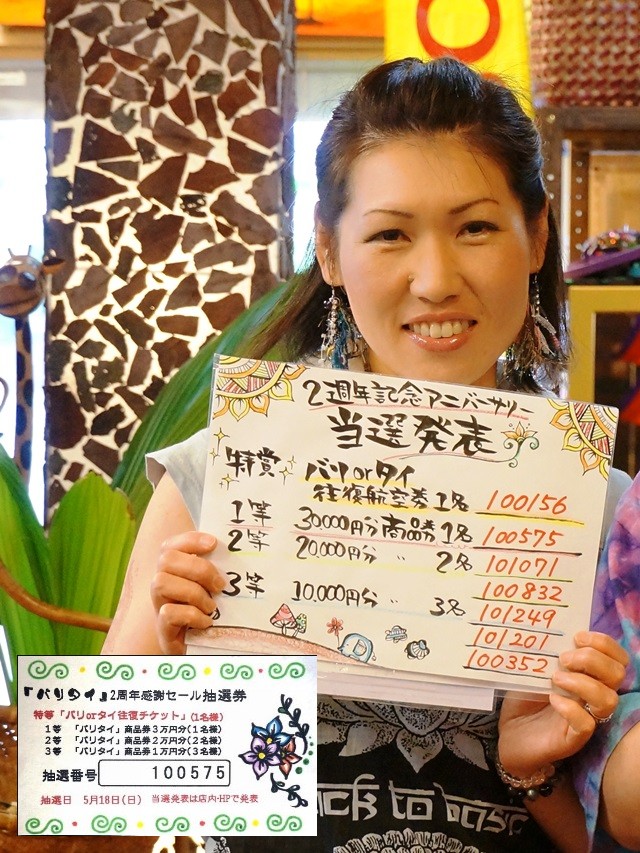 2周年記念アニバーサリー
当選発表
特賞 バリorタイ
往復航空券 1名 100156
1等 30000円分商品券 1名 100575
2等 20,000円分 〃 2名 101071
100832
3等 10,000円分 〃 3名 101249
101201
100352
back to basic
『バリタイ』2周年感謝セール抽選券
特等「バリorタイ往復チケット」(1名様)
1等 「バリタイ」商品券3万円分(1名様)
2等 「バリタイ」商品券2万円分(2名様)
3等 「バリタイ」商品券1万円分(3名様)
抽選番号 100575
抽選日 5月18日(日) 当選発表は店内・HPで発表